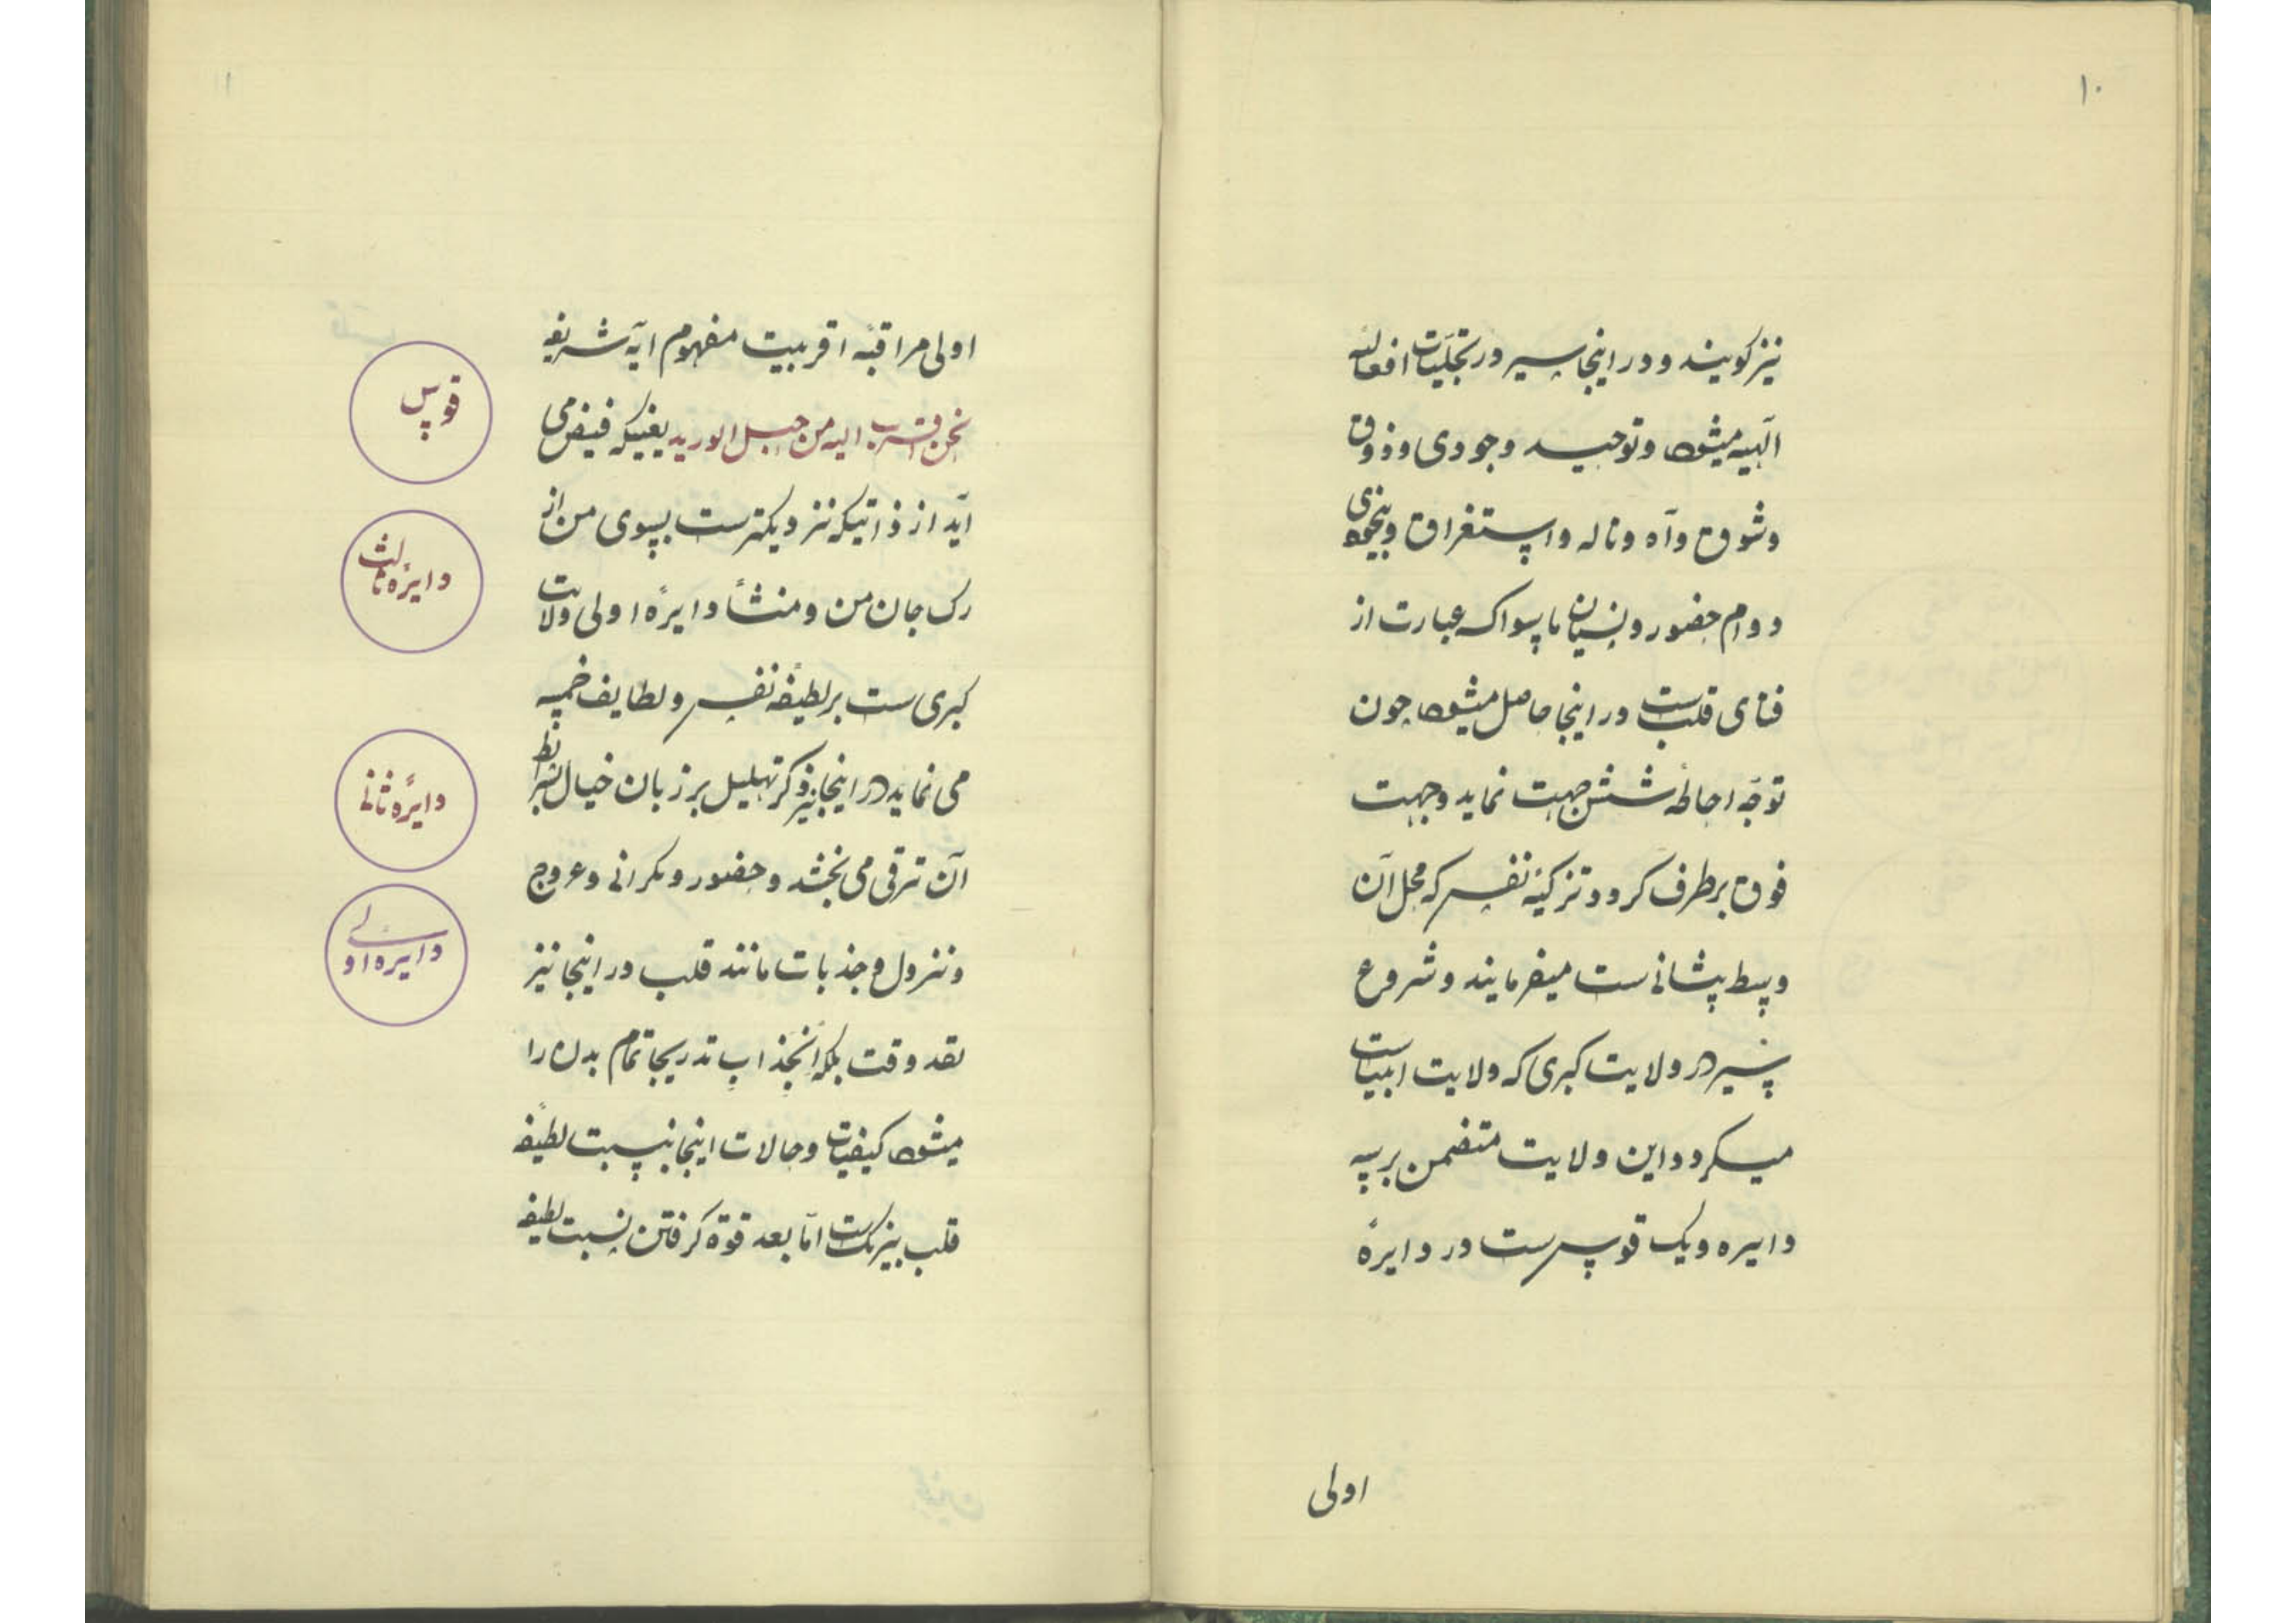 ۱۰
نیز کویند و در اینجا سیر در تجلّیات افعالیه
الٓهیه میشود و توحید وجودی و ذوق
و شوق و آه و ناله و استغراق و بیخودی
و دوام حضور و نسیان ماسوا که عبارت از
فنای قلب ست در اینجا حاصل میشود چون
توجّه احاطهٔ شش جهت نماید و جهت
فوق برطرف کردد تزکیهٔ نفس که محل آن
وسط پیشانی ست میفرمایند و شروع
سیر در ولایت کبری که ولایت انبیاست
میکردد و این ولایت متضمن بر سه
دایره و یک قوس ست در دایرهٔ
اولی
۱۱
اولی مراقبهٔ اقربیت مفهوم ایهٔ شریفه
نحن اقرب الیه من حبل الورید یعنیکه فیض می
آید از ذاتیکه نزدیکترست بسوی من از
رک جان من و منشأ دایرهٔ اولی ولایت
کبری ست بر لطیفهٔ نفس و لطایف خمسه
می نماید در اینجا نیز ذکر تهلیل بر زبان خیال بشرایط
آن ترقی می بخشد و حضور و نکرانی و عروج
و نزول و جذبات مانند قلب در اینجا نیز
نقد وقت بلکه انجذاب تدریجا تمام بدن را
میشود کیفیات و حالات اینجا بنسبت لطیفهٔ
قلب بیرنک ست امّا بعد قوة کرفتن نسبت لطیفه
قوس
دایرهٔ ثالث
دایرهٔ ثانی
دایره اولی